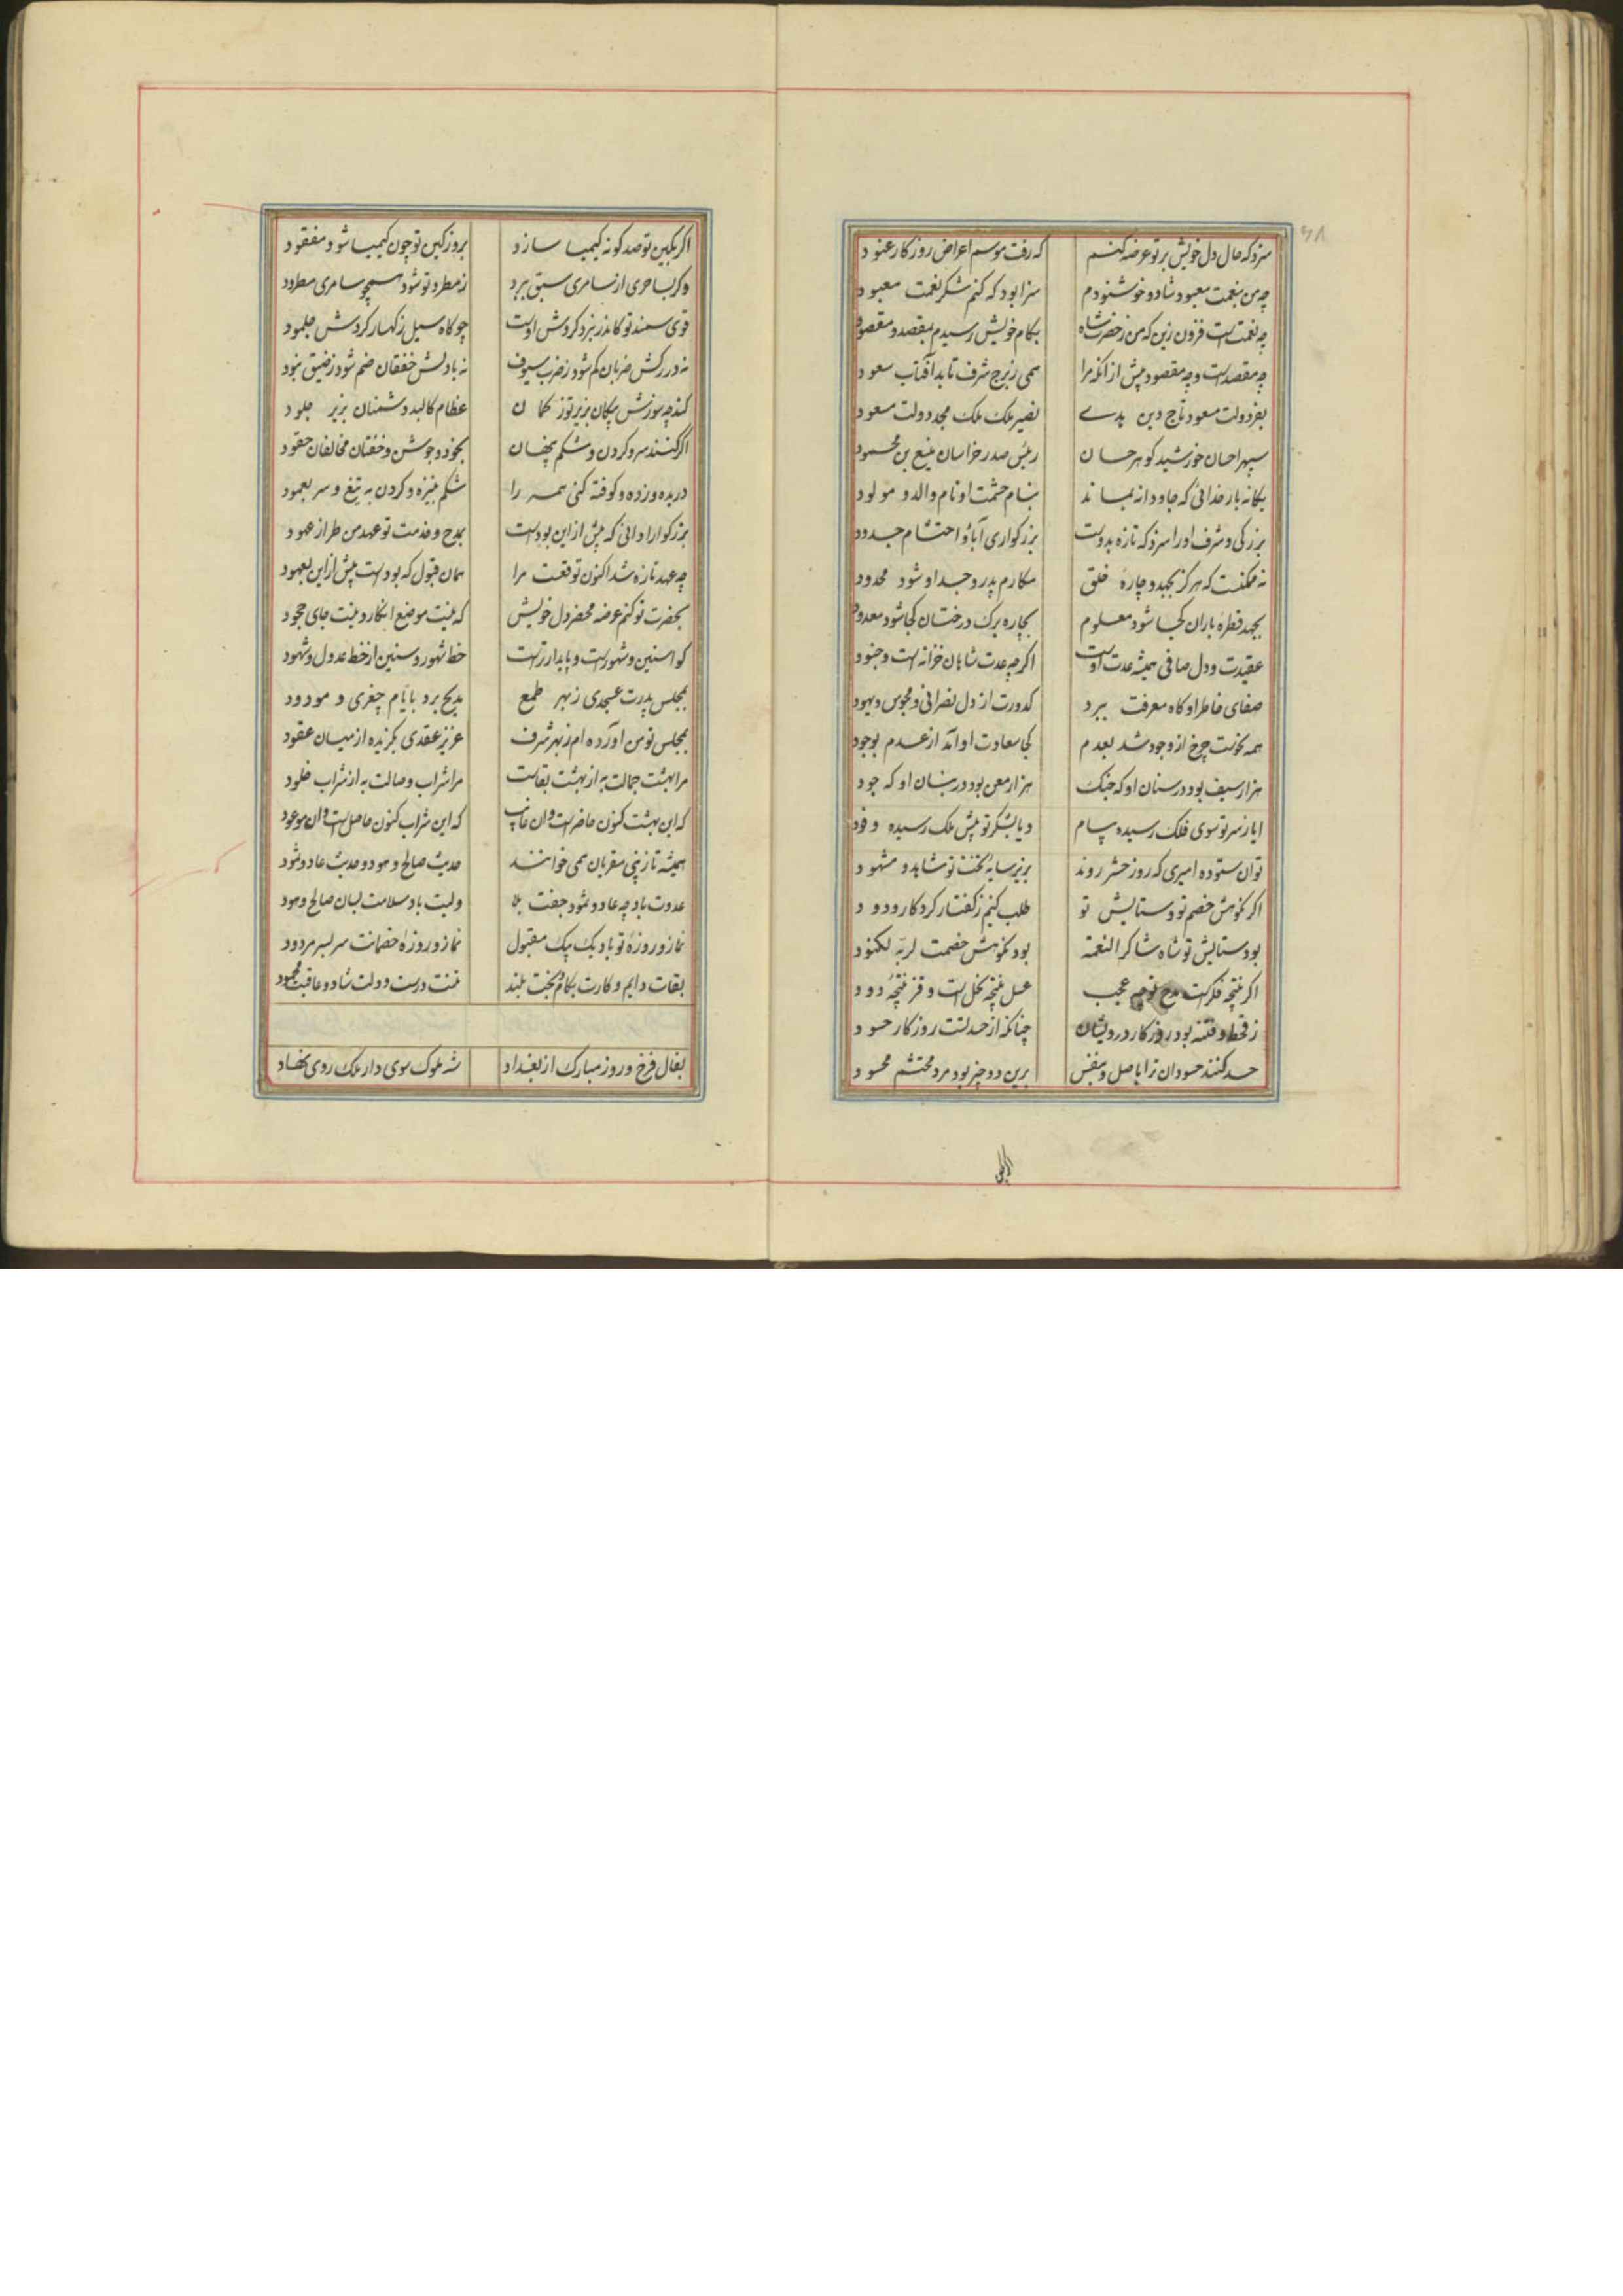 سزد که حال دل خویش بر تو عرضه کنم که رفت موسم اعراض روزکار عنود
چه من بنعمت معبود شاد و خوشنودم سزا بود که کنم شکر نعمت معبود
چه نعمت است فزون زین که من ز حضرت شاه بکام خویش رسیدم بمقصد و مقصود
چه مقصد است و چه مقصود پیش از آنکه مرا همی ز برج شرف تابد آفتاب سعود
بفر دولت مسعود تاج دین پدرے نصیر ملک ملک مجد دولت مسعود
سپهر احسان خورشید کوهر حسان رئیس صدر خراسان منیع بن محمود
یکانه بار خدائی که جاودانه بماند بنام حشمت او نام والد و مولود
بزرکی و شرف او را سزد که تازه بدوست بزرکواری آباؤ احتشام جدود
نه ممکنست که هرکز بجهد و چارهٔ خلق مکارم پدر و جد او شود محدود
بجهد قطرهٔ باران کجا شود معلوم بچاره برک درختان کجا شود معدود
عقیدت و دل صافی همیشه عدت اوست اکرچه عدت شاهان خزانه است و جنود
صفای خاطر او کاه معرفت ببرد کدورت از دل نصرانی و مجوس و یهود
همه نحوست چرخ از وجود شد بعدم کجا سعادت او آمد از عدم بوجود
هزار سیف بود در سنان او که جنک هزار معن بود در بنان او که جود
ایا ز سر تو سوی فلک رسیده پیام و یا بشکر تو پیش ملک رسیده وفود
توان ستوده امیری که روز حشر روند بزیر سایهٔ تخت تو شاهد و مشهود
اکر نکوهش خصم تو و ستایش تو طلب کنیم ز کفتار کردکار ودود
بود ستایش تو شاه شاکرا لنعمه بود نکوهش خصمت لربّه لکنود
اکر نتیجه فکرت مدح تو چه عجب عسل نتیجه نحل است و قز نتیجهٔ دود
ز قحط و فتنه بود روزکار درویشان چنانکه از حسد تست روزکار حسود
حسد کنند حسودان ترا باصل و بنفس برین دو چیز بود مرد محتشم محسود
اکر بکین تو صد کونه کیمیا سازد بروز کین تو چون کیمیا شود مفقود
وکر بساحری از سامری سبق ببرد ز مطرد تو شود همچو سامری مطرود
قوی سمند تو کاندر نبرد کردش اوست چو کاه سیل ز کهسار کردش جلمود
نه در رکش ضربان کم شود ز ضرب سیوف نه با دلش خفقان ضم شود ز ضیق نبود
کند چه سوزش پیکان بزیر توز کمان عظام کالبد دشمنان بزیر جلود
اکر کنند سر و کردن و شکم پنهان بخود و جوشن و خفتان مخالفان حقود
دریده و زده و کوفته کنی همه را شکم بنیزه و کردن به تیغ و سر بعمود
بزرکوارا دانی که پیش از این بودست بمدح و خدمت تو عهد من طراز عهود
چه عهد تازه شد اکنون توقعست مرا همان قبول که بود است پیش از این بعهود
بحضرت تو کنم عرضه محضر دل خویش که نیست موضع انکار و نیست جای جحود
کوا سنین و شهورست و پایدارترست خط شهور و سنین از خط عدول و شهود
بمجلس پدرت عسجدی ز بهر طمع مدیح برد بایّام چغری و مودود
بمجلس تو من آورده ام ز بهر شرف عزیز عقدی بکزیده از میان عقود
مرا بهشت جمالت به از بهشت بقاست مرا شراب وصالت به از شراب خلود
که این بهشت کنون حاضر است و ان غایب که این شراب کنون حاصل است و ان موعود
همیشه تا ز نبی مقریان همی خوانند حدیث صالح و هود و حدیث عاد و ثمود
عدوت باد چه عاد و ثمود جفت بلا ولیت باد سلامت بسان صالح و هود
نماز و روزهٔ تو باد یک بیک مقبول نماز و روزهٔ خصمانت سر بسر مردود
بقات دایم و کارت بکام و بخت بلند تنت درست و دولت شاد و عاقبت محمود
بفال فرخ و روز مبارک از بغداد شه ملوک سوی دار ملک روی نهاد